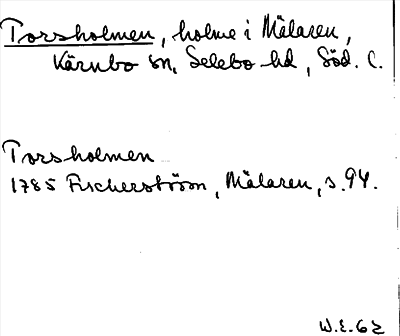 Torsholmen, holme i Mälaren,
Kärnbo sn, Selebo hd, Söd. C.
Torsholmen
1785 Fischerström, Mälaren, s.94.
W.E.62